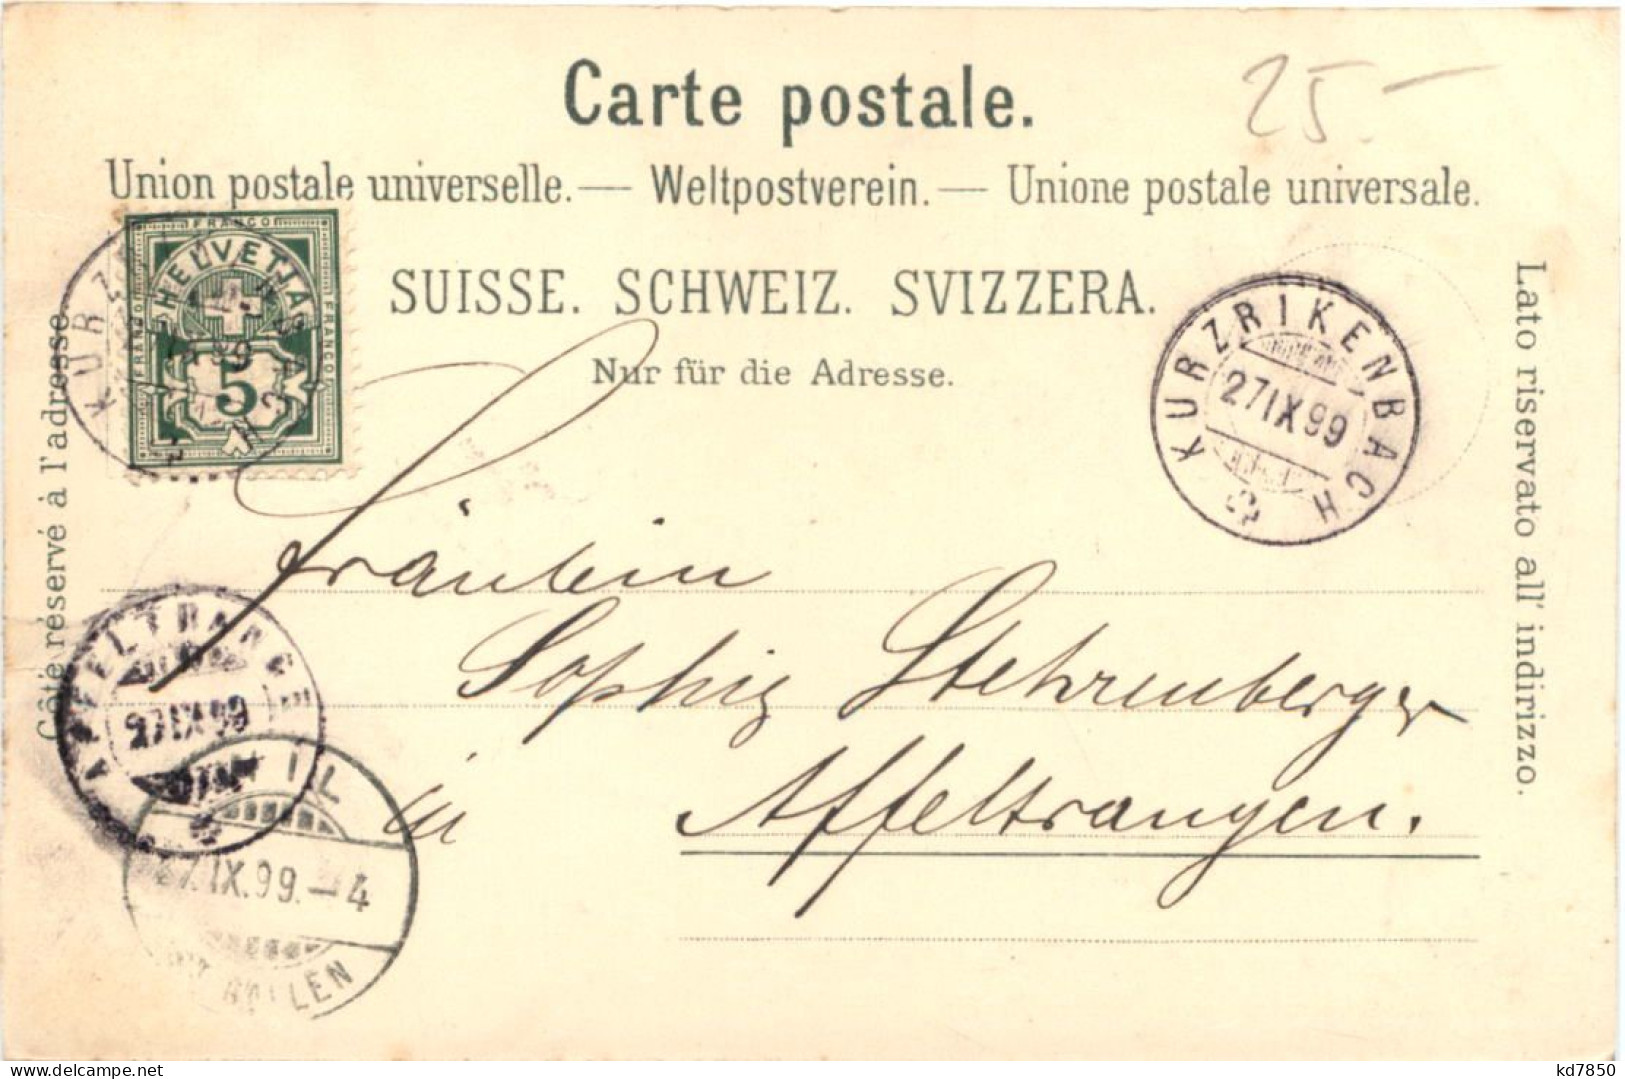 Carte postale.
25.-
Union postale universelle. — Weltpostverein. — Unione postale universale.
SUISSE. SCHWEIZ. SVIZZERA.
Nur für die Adresse.
Côté réservé à l'adresse.
Lato riservato all' indirizzo.
FRANCO
HELVETIA
FRANCO
FRANCO
5
KURZRIKENBACH
27 IX 99
Fräulein
Sophie Stehrenberger
in Affeltrangen.
AFFELTRANGEN
27 IX 99
WIL
27. IX. 99. – 4
GALLEN
kd7850